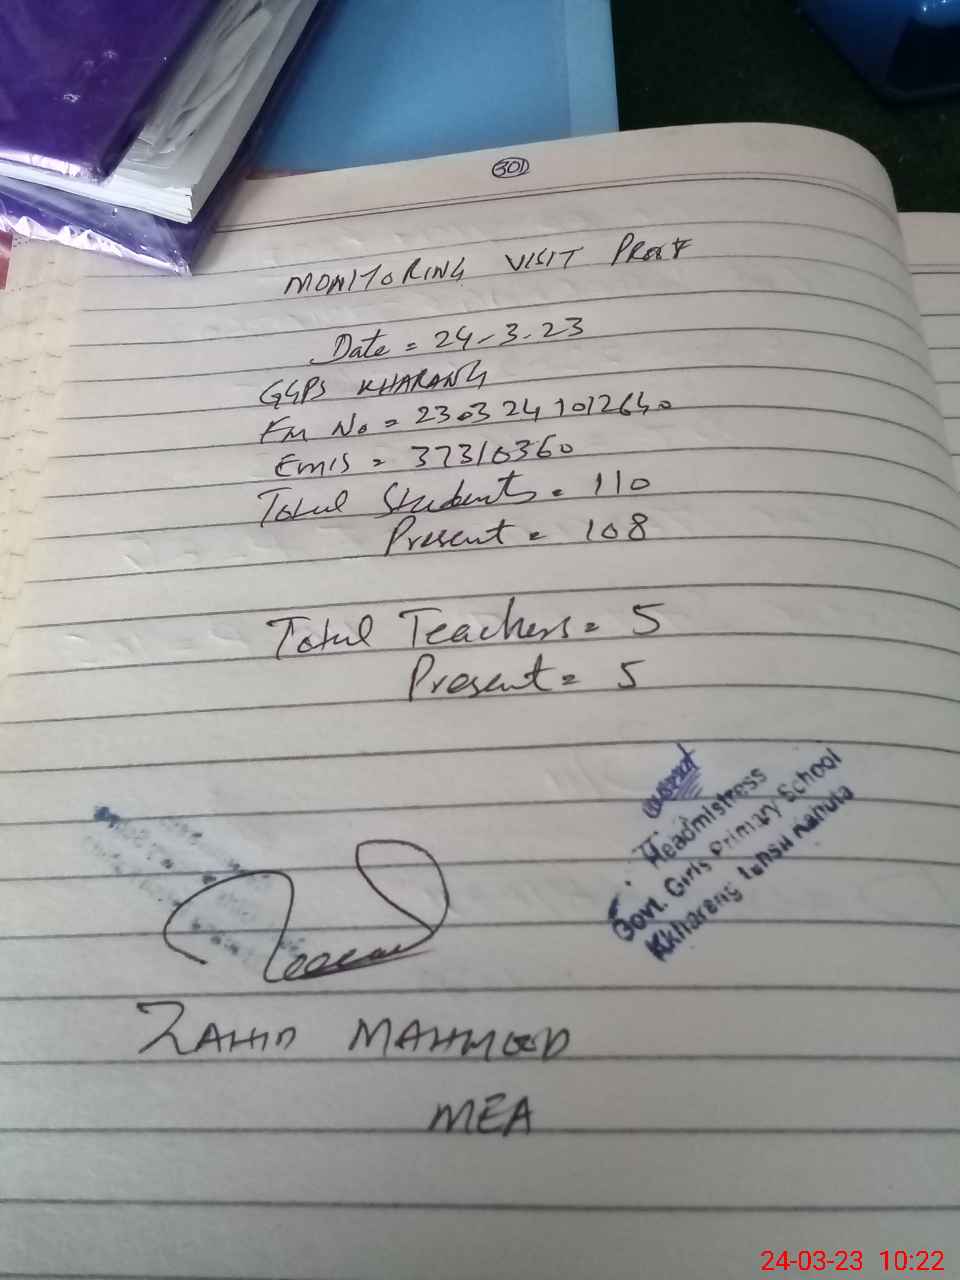 301
MONITORING VISIT PROOF
Date = 24-3-23
GGPS KHARANG
FM No = 2303241012640
Emis = 37310360
Total Students = 110
Present = 108
Total Teachers = 5
Present = 5
Headmistress
Govt. Girls Primary School
Kharang
ZAHID MAHMOOD
MEA
24-03-23 10:22